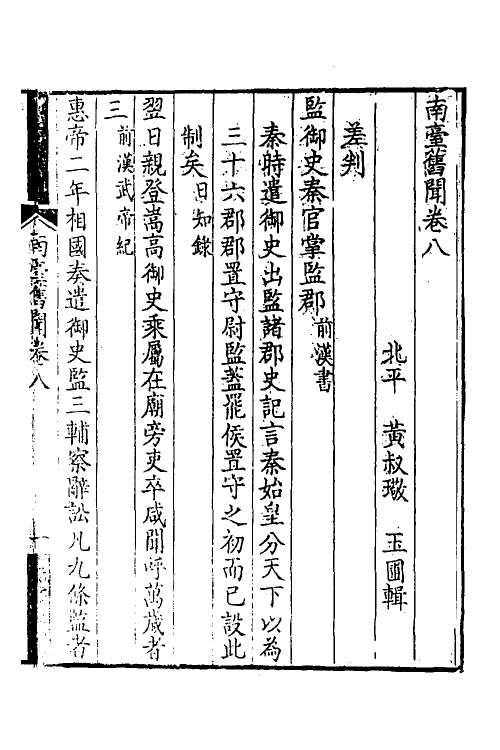 南臺舊聞卷八
北平　黃叔璥　玉圃輯
差判
監御史秦官掌監郡前漢書
秦特遣御史出監諸郡史記言秦始皇分天下以為
三十六郡郡置守尉監蓋罷侯置守之初而已設此
制矣日知錄
翌日親登嵩高御史乘屬在廟旁吏卒咸聞呼萬歲者
三前漢武帝紀
惠帝二年相國奏遣御史監三輔察辭訟凡九條監者
南臺舊聞卷八
一